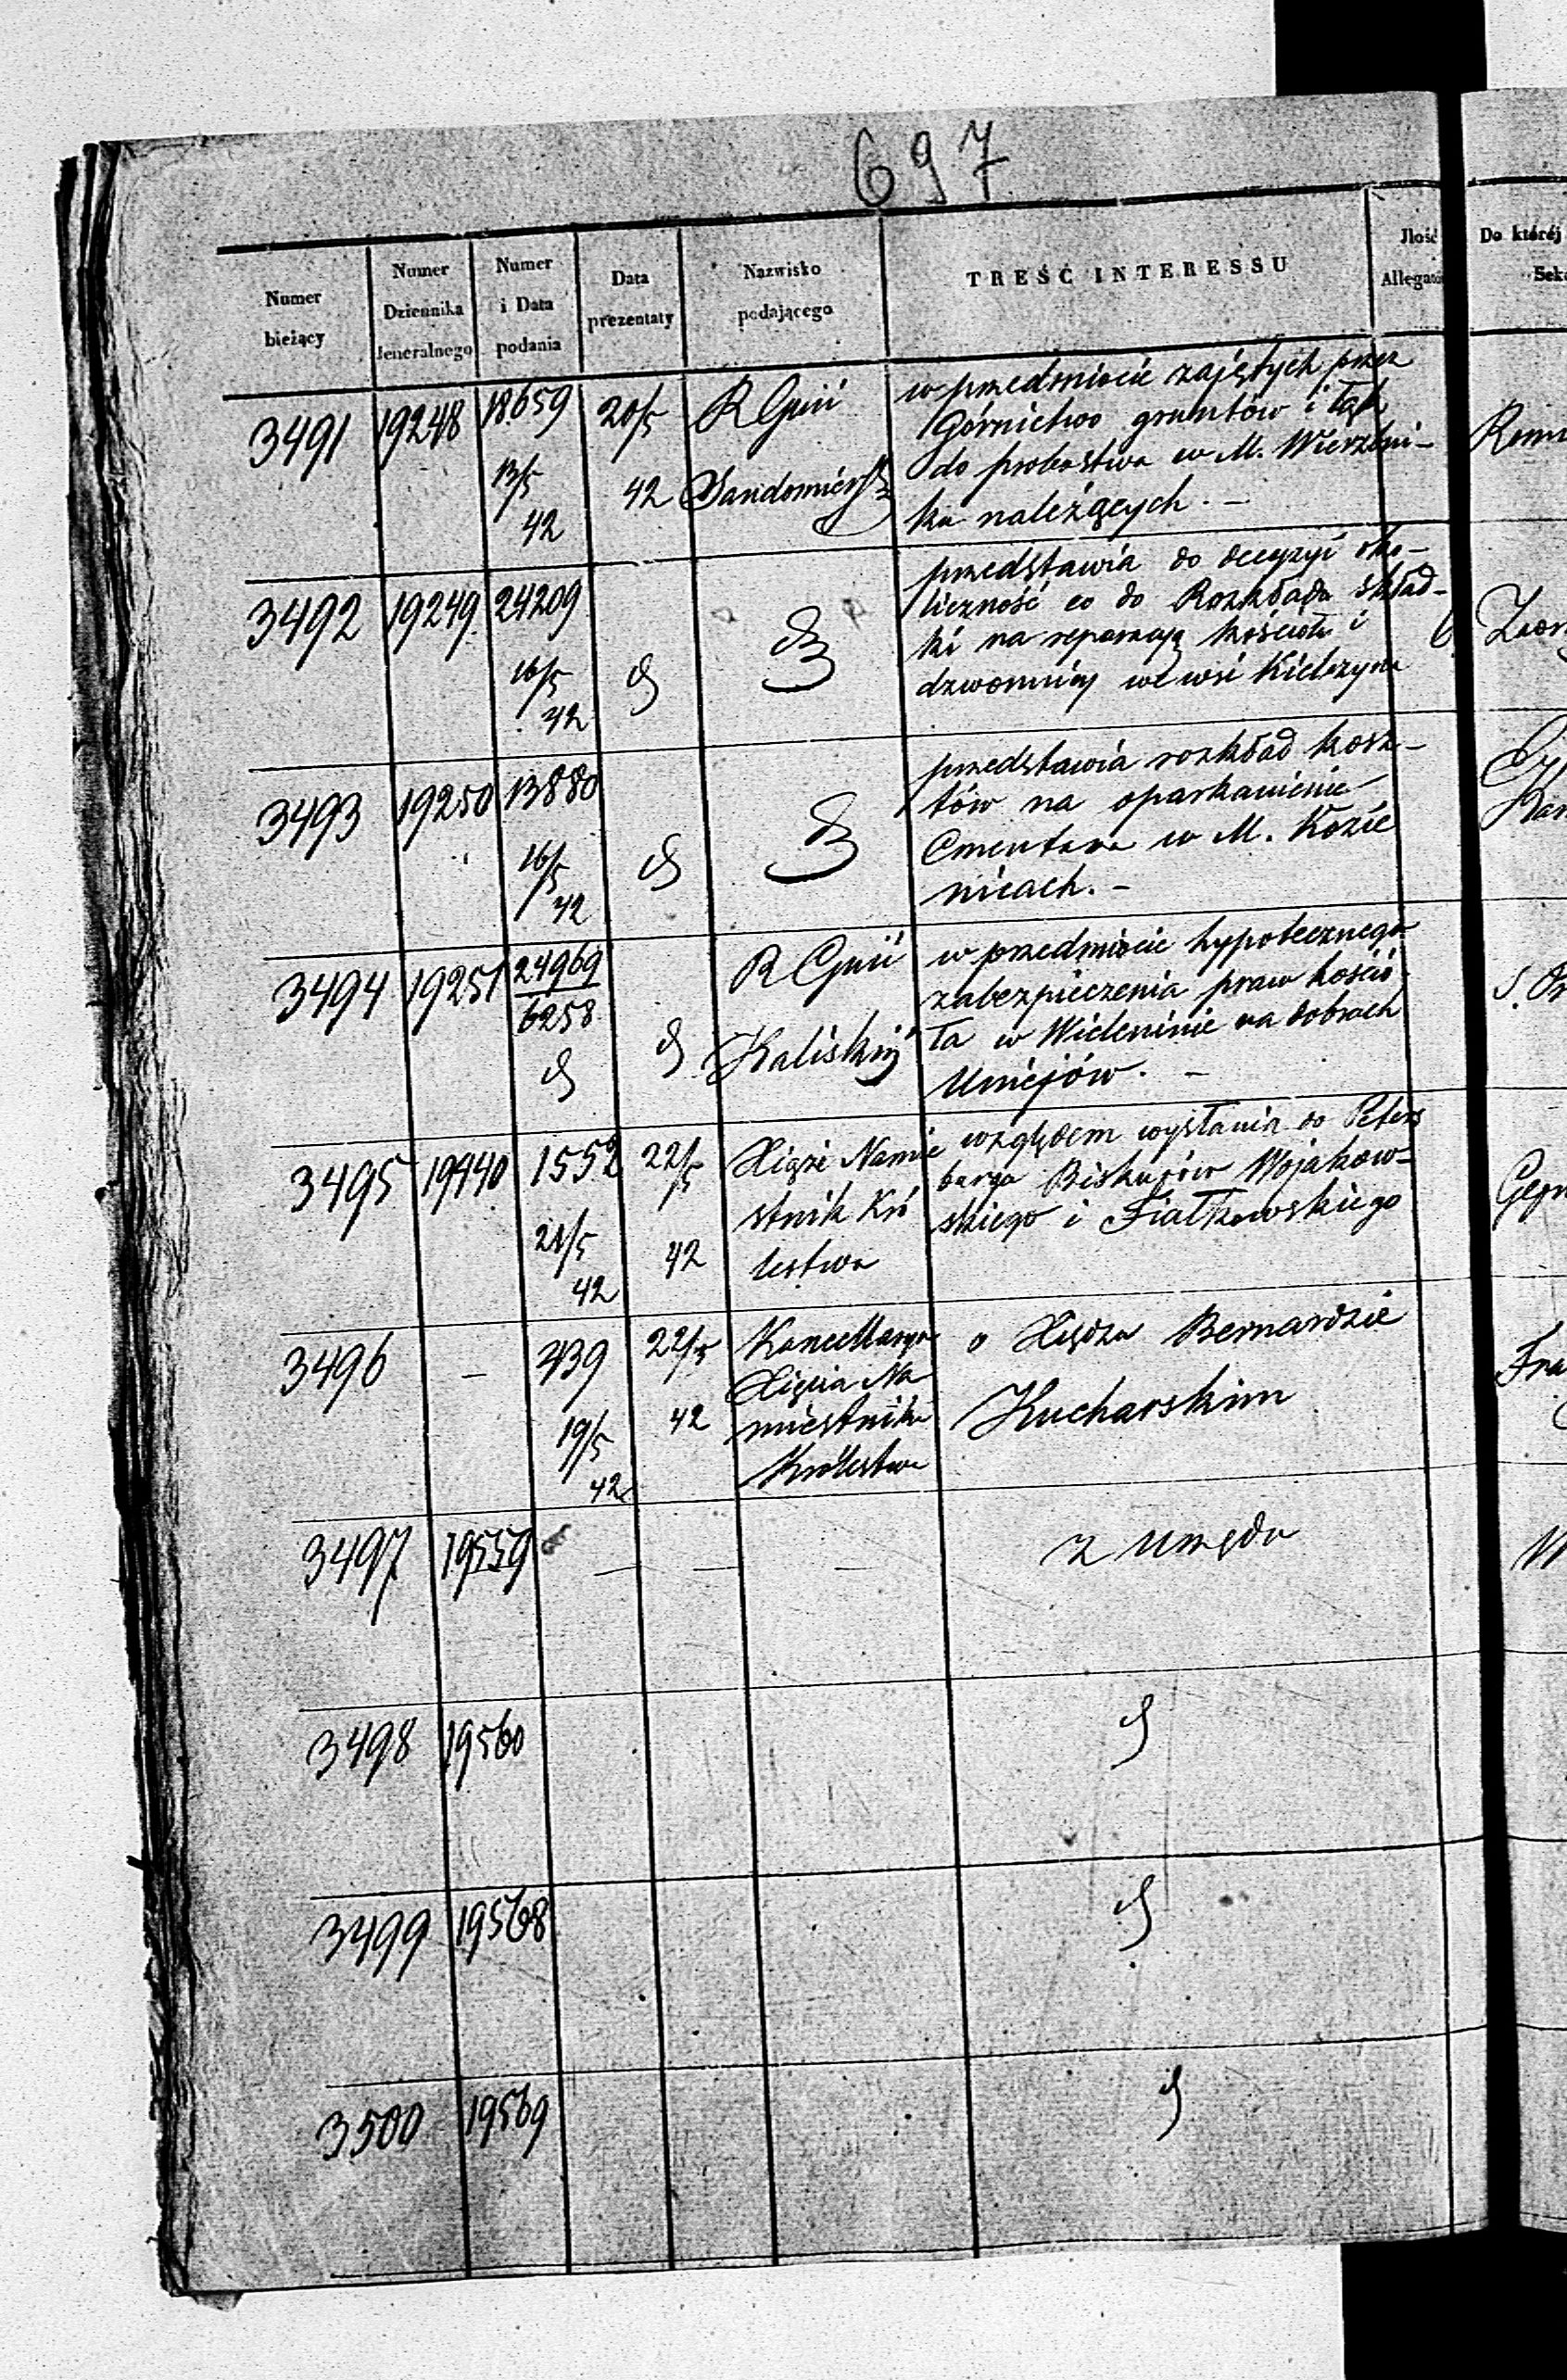 697
Numer bieżący
Numer Dziennika Jeneralnego
Numer i Data podania
Data prezentaty
Nazwisko podającego
TREŚĆ INTERESSU
Jlość Allegató
Do któréj Sek
3491 19248 18659 13/5 42 20/5 42 R Gnii Sandomiersk
w przedmiocie zajętych przez
Górnictwo gruntów i łąk
do probostwa w M. Wierzbni-
ka należących. -
3492 19249 24209 16/5 42
przedstawia do decyzyi oko-
liczność co do Rozkładu skład-
ki na reparacyą kościoła i
dzwonnicy we wsi Kiełczyna
6
3493 19250 13880 16/5 42
przedstawia rozkład kosz-
tów na oparkanienie
Cmentarza w M. Kozie
nicach. -
3494 19251 24969 6258 R Gnii Kaliskiej
w przedmiocie hypotecznego
zabezpieczenia praw kościo
ła w Wieleninie na dobrach
Uniejów. -
3495 19440 1552 21/5 42 22/5 42 Xiąże Namie
stnik Kró
lestwa
względem wysłania do Peters
burga Biskupów Wojakow-
skiego i Fiałkowskiego
3496 - 439 19/5 42 22/5 42 Kancellarya
Xięcia Na
miestnika
Królestwa
o Xiędzu Bernardzie
Kucharskim
3497 19559 - - - z urzędu
3498 19560
3499 19568
3500 19569